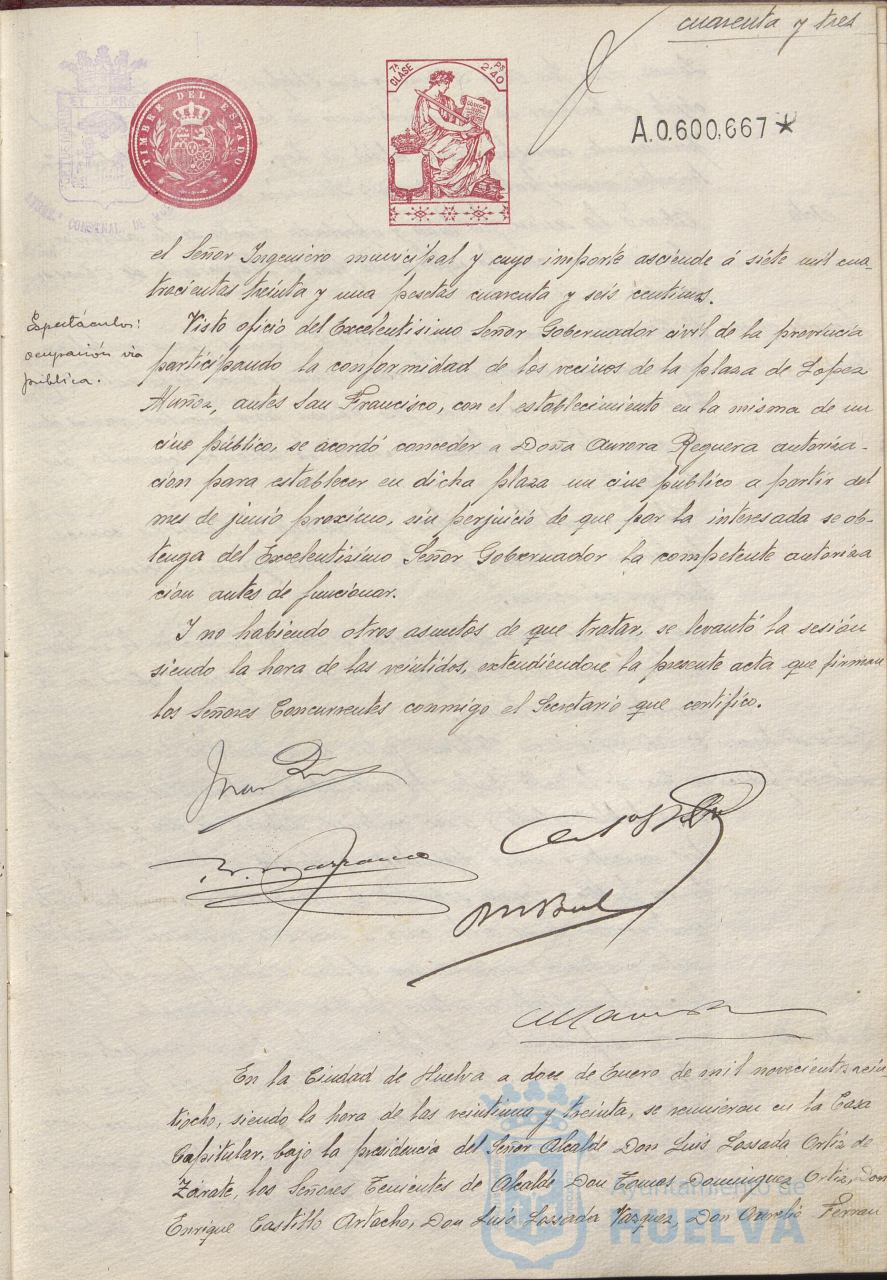 cuarenta y tres
TIMBRE DEL ESTADO
7ª CLASE
PS 2'40
A.0.600,667*
el Señor Ingeniero municipal y cuyo importe asciende á siete mil cua-
trocientas treinta y una pesetas cuarenta y seis centimos.
Espectáculos:
ocupación via
pública.
Visto oficio del Excelentisimo Señor Gobernador civil de la provincia
participando la conformidad de los vecinos de la plaza de Lopez
Muñoz, antes San Francisco, con el establecimiento en la misma de un
cine público, se acordó conceder a Doña Aurora Reguera autoriza-
ción para establecer en dicha plaza un cine público a partir del
mes de junio proximo, sin perjuicio de que por la interesada se ob-
tenga del Excelentisimo Señor Gobernador la competente autoriza
ción antes de funcionar.
Y no habiendo otros asuntos de que tratar, se levantó la sesión
siendo la hora de las veintidos, extendiéndose la presente acta que firman
los Señores Concurrentes conmigo el Secretario que certifico.
En la Ciudad de Huelva a doce de Enero de mil novecientos vein-
tiocho, siendo la hora de las veintiuna y treinta, se reunieron en la Casa
Capitular, bajo la presidencia del Señor Alcalde Don Luis Lossada Ortiz de
Zárate, los Señores Tenientes de Alcalde Don Tomas Dominguez Ortiz, Don
Enrique Castillo Artacho, Don Luis Lossada Vazquez, Don Aurelio Ferran
Ayuntamiento de
HUELVA